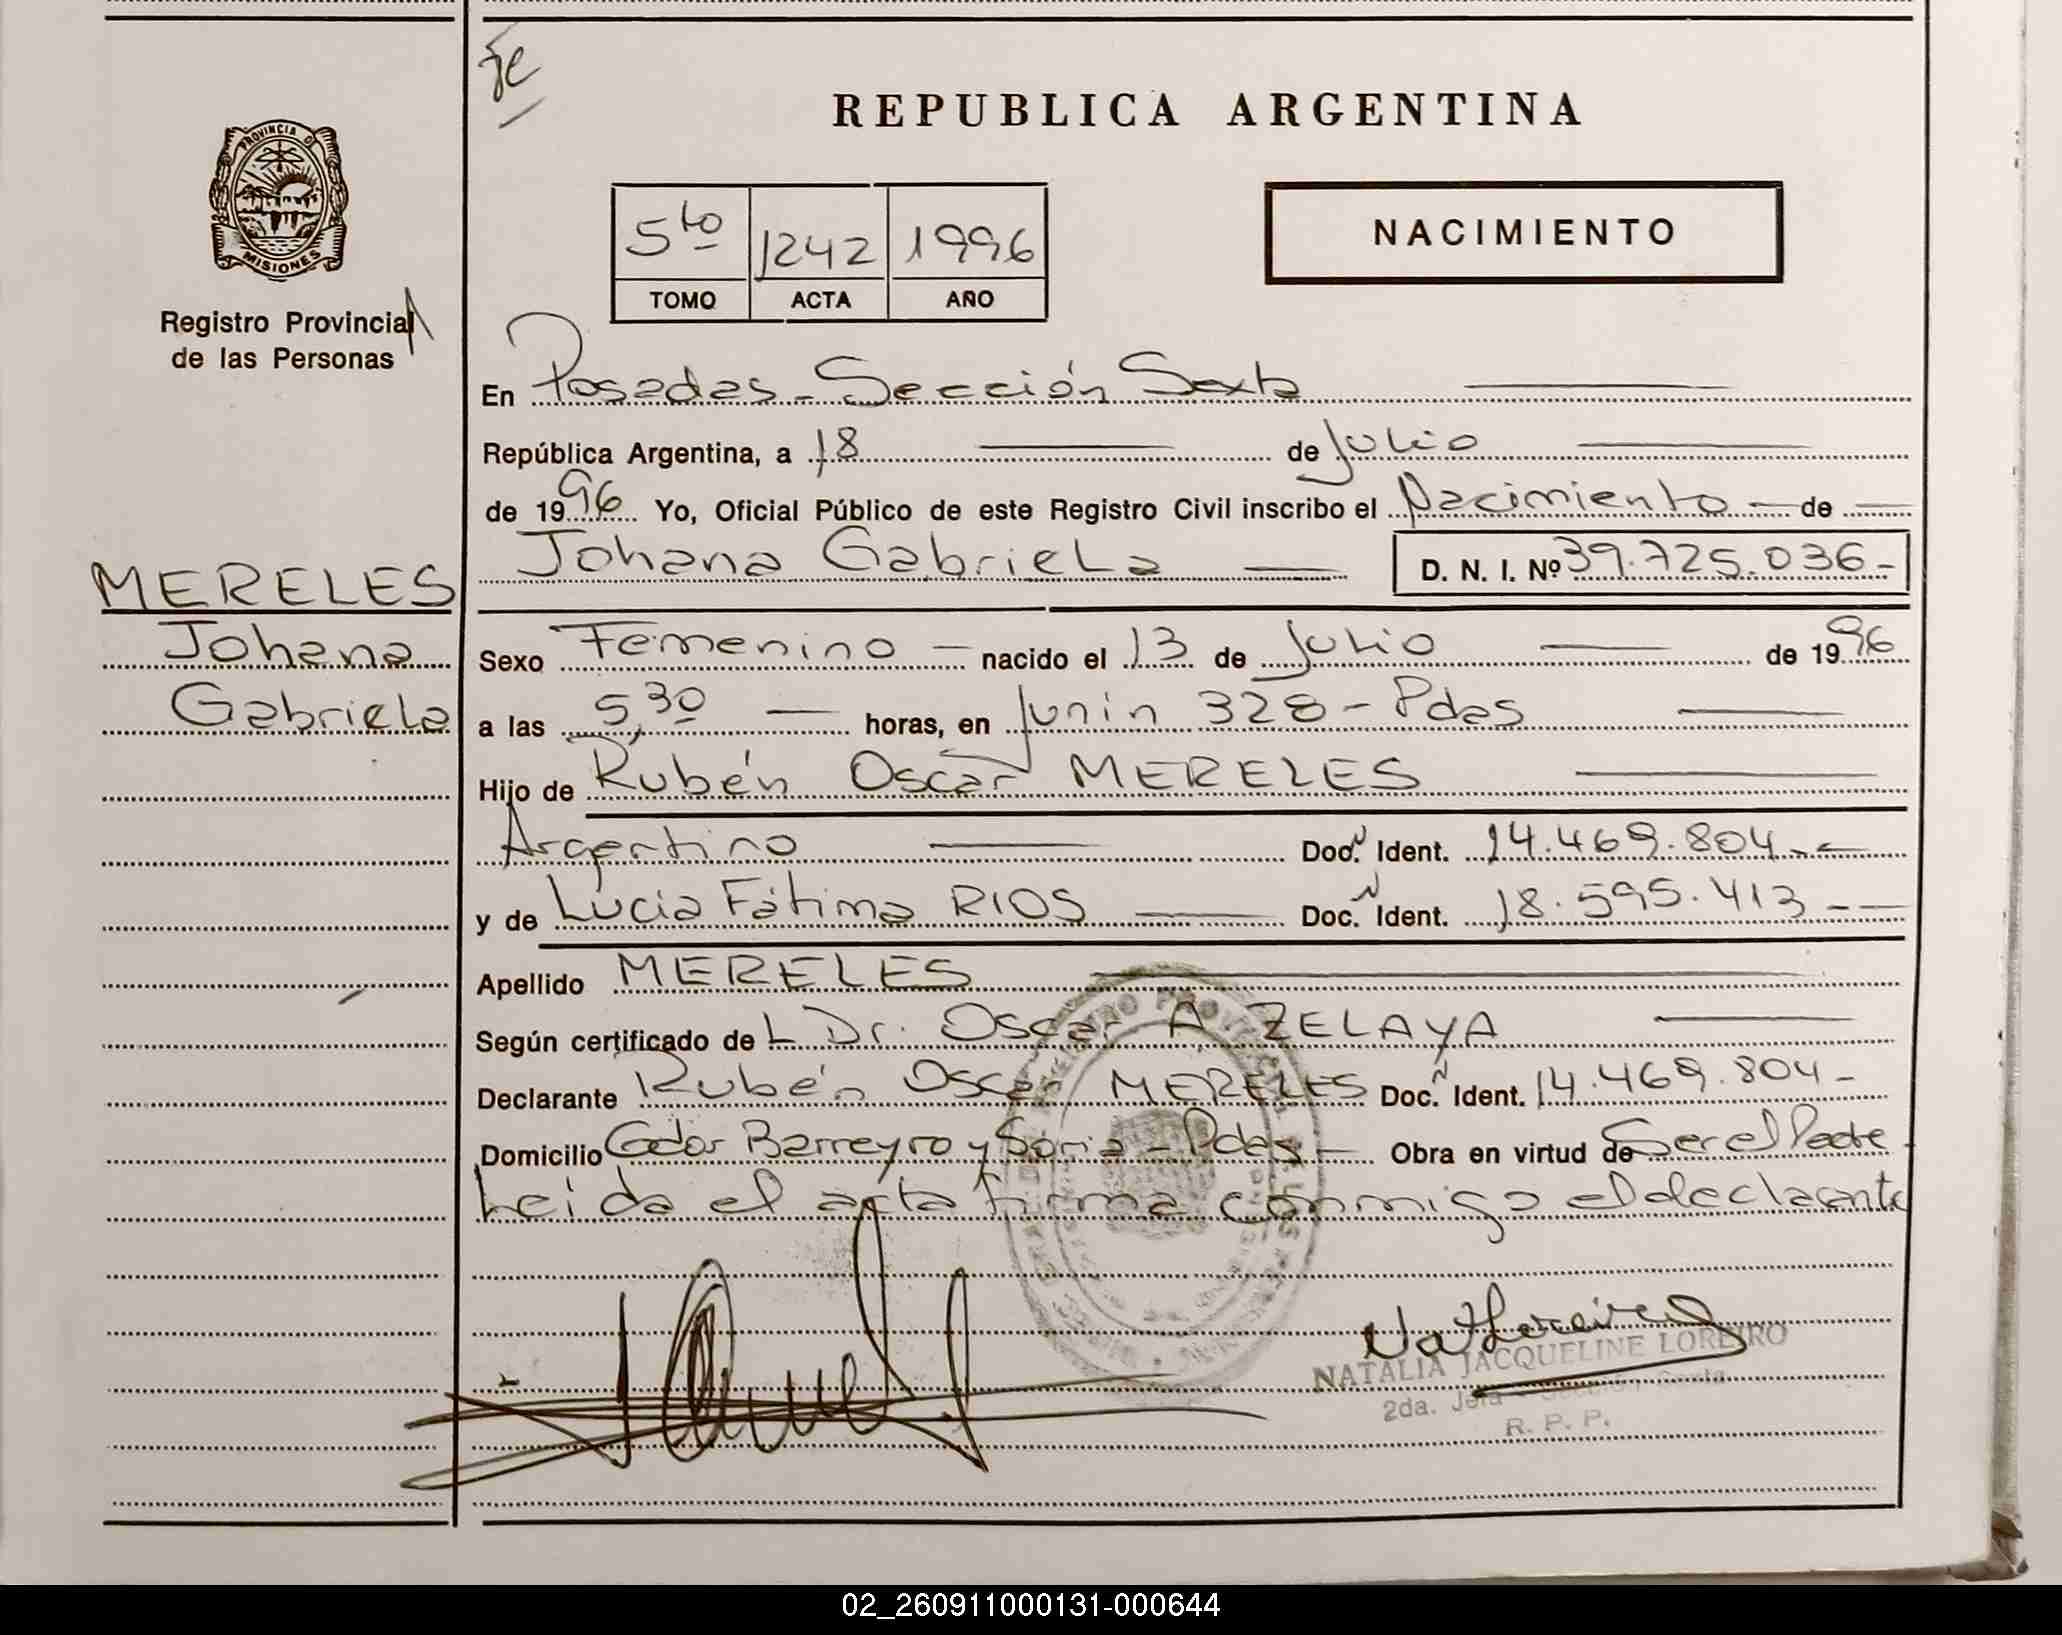 REPUBLICA ARGENTINA
PROVINCIA D
MISIONES
Registro Provincial
de las Personas
5to 1242 1996
TOMO ACTA AÑO
NACIMIENTO
En Posadas - Sección Sexta
República Argentina, a 18 de Julio
de 1996 Yo, Oficial Público de este Registro Civil inscribo el Nacimiento - de
Johana Gabriela D. N. I. Nº 39.725.036-
MERELES
Johana
Gabriela
Sexo Femenino - nacido el 13 de Julio de 1996
a las 5,30 horas, en Junin 328 - Pdas
Hijo de Rubén Oscar MERELES
Argentino Doc. Ident. 14.469.804
y de Lucia Fátima RIOS Doc. Ident. 18.595.413
Apellido MERELES
Según certificado de L Dr. Oscar A ZELAYA
Declarante Rubén Oscar MERELES Doc. Ident. 14.469.804-
Domicilio Barreyro y Soria - Pdas - Obra en virtud de Ser el Padre
Leida el acta firma conmigo el declarante
NATALIA JACQUELINE LOREIRO
2da. Jefa - Sección Sexta
R. P. P.
02_260911000131-000644